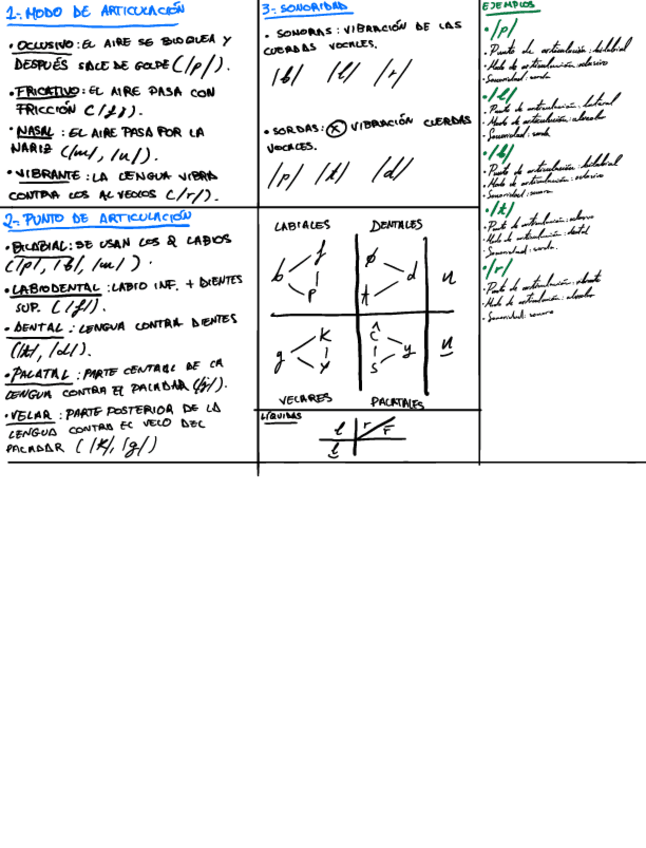 1-. MODO DE ARTICULACIÓN
• OCLUSIVO: EL AIRE SE BLOQUEA Y
DESPUÉS SALE DE GOLPE (/p/).
• FRICATIVO: EL AIRE PASA CON
FRICCIÓN (/f/).
• NASAL: EL AIRE PASA POR LA
NARIZ (/m/, /n/).
• VIBRANTE: LA LENGUA VIBRA
CONTRA LOS ALVEOLOS (/r/).
2-. PUNTO DE ARTICULACIÓN
• BILABIAL: SE USAN LOS 2 LABIOS
(/p/, /b/, /m/).
• LABIODENTAL: LABIO INF. + DIENTES
SUP. (/f/).
• DENTAL: LENGUA CONTRA DIENTES
(/t/, /d/).
• PALATAL: PARTE CENTRAL DE LA
LENGUA CONTRA EL PALADAR
• VELAR: PARTE POSTERIOR DE LA
LENGUA CONTRA EL VELO DEL
PALADAR (/k/, /g/)
3-. SONORIDAD
• SONORAS: VIBRACIÓN DE LAS
CUERDAS VOCALES.
/b/ /l/ /r/
• SORDAS: X VIBRACIÓN CUERDAS
VOCALES.
/p/ /t/ /d/
LABIALES DENTALES
f
b
p
d
t
n
K
g
ĉ
y
s
VELARES PALATALES
LÍQUIDAS
l r
l
EJEMPLOS
• /p/
• Punto de articulación: bilabial
• Modo de articulación: oclusivo
• Sonoridad: sorda
• /l/
• Punto de articulación: lateral
• Modo de articulación: alveolar
• Sonoridad: sorda
• /b/
• Punto de articulación: bilabial
• Modo de articulación: oclusivo
• Sonoridad: sonora
• /t/
• Punto de articulación:
• Modo de articulación: dental
• Sonoridad: sorda.
• /r/
• Punto de articulación:
• Modo de articulación: alveolar
• Sonoridad: sonora